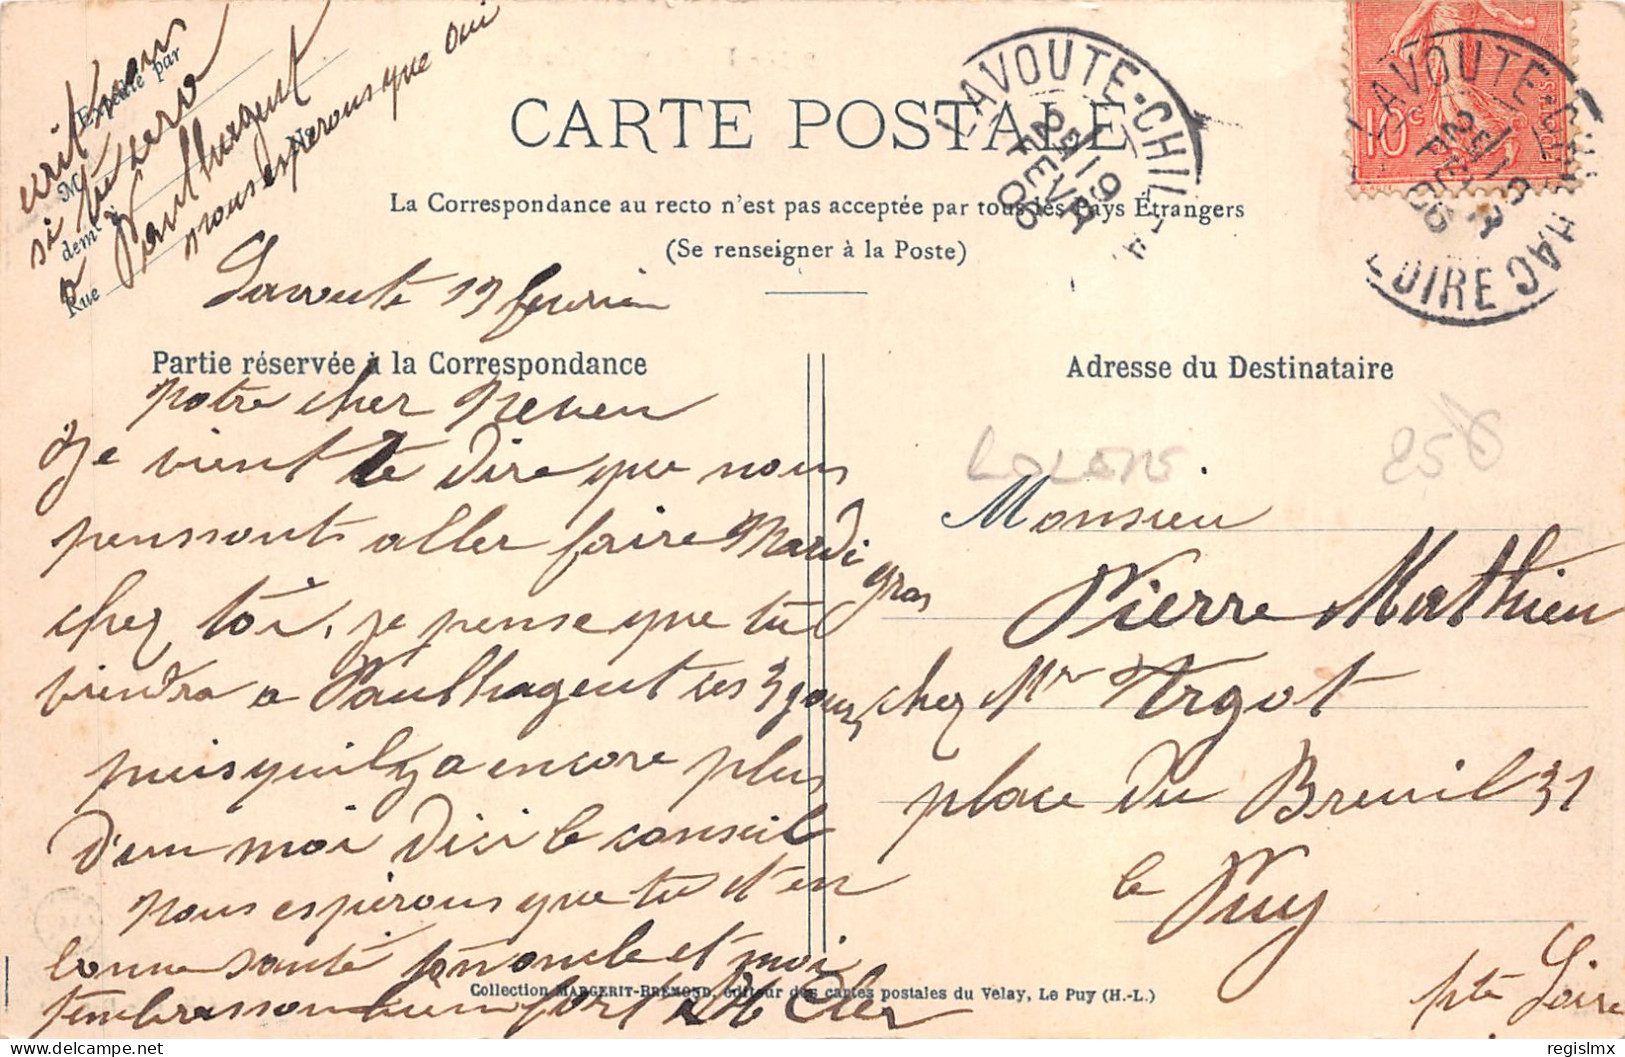 écrit nous
si tu vera
a Paulhagent
nous esperons que oui
Expédié par
M
dem<sup>t</sup> à
Rue
N°
CARTE POSTALE
La Correspondance au recto n'est pas acceptée par tous les Pays Étrangers
(Se renseigner à la Poste)
LAVOUTE-CHIL
19
FEVR
06
10c
LAVOUTE-CHILHAC
LOIRE
Lavoute 19 fevrier
Partie réservée à la Correspondance
Adresse du Destinataire
Notre cher Neveu
Je vient te dire que nous
penssont aller faire Mardi gras
chez toi, je pense que tu
viendra a Paulhagent ses 3 jours
puisquil y a encore plus
d'un moi dici le conseil
nous espérons que tu d'en
bonne santé ton oncle et moi
t'embrasson bien fort
Monsieur
Pierre Mathieu
chez Mr Argot
place du Breuil 31
le Puy
hte Loire
258
Collection MARGERIT-BREMOND, éditeur des cartes postales du Velay, Le Puy (H.-L.)
delcampe.net
regislmx